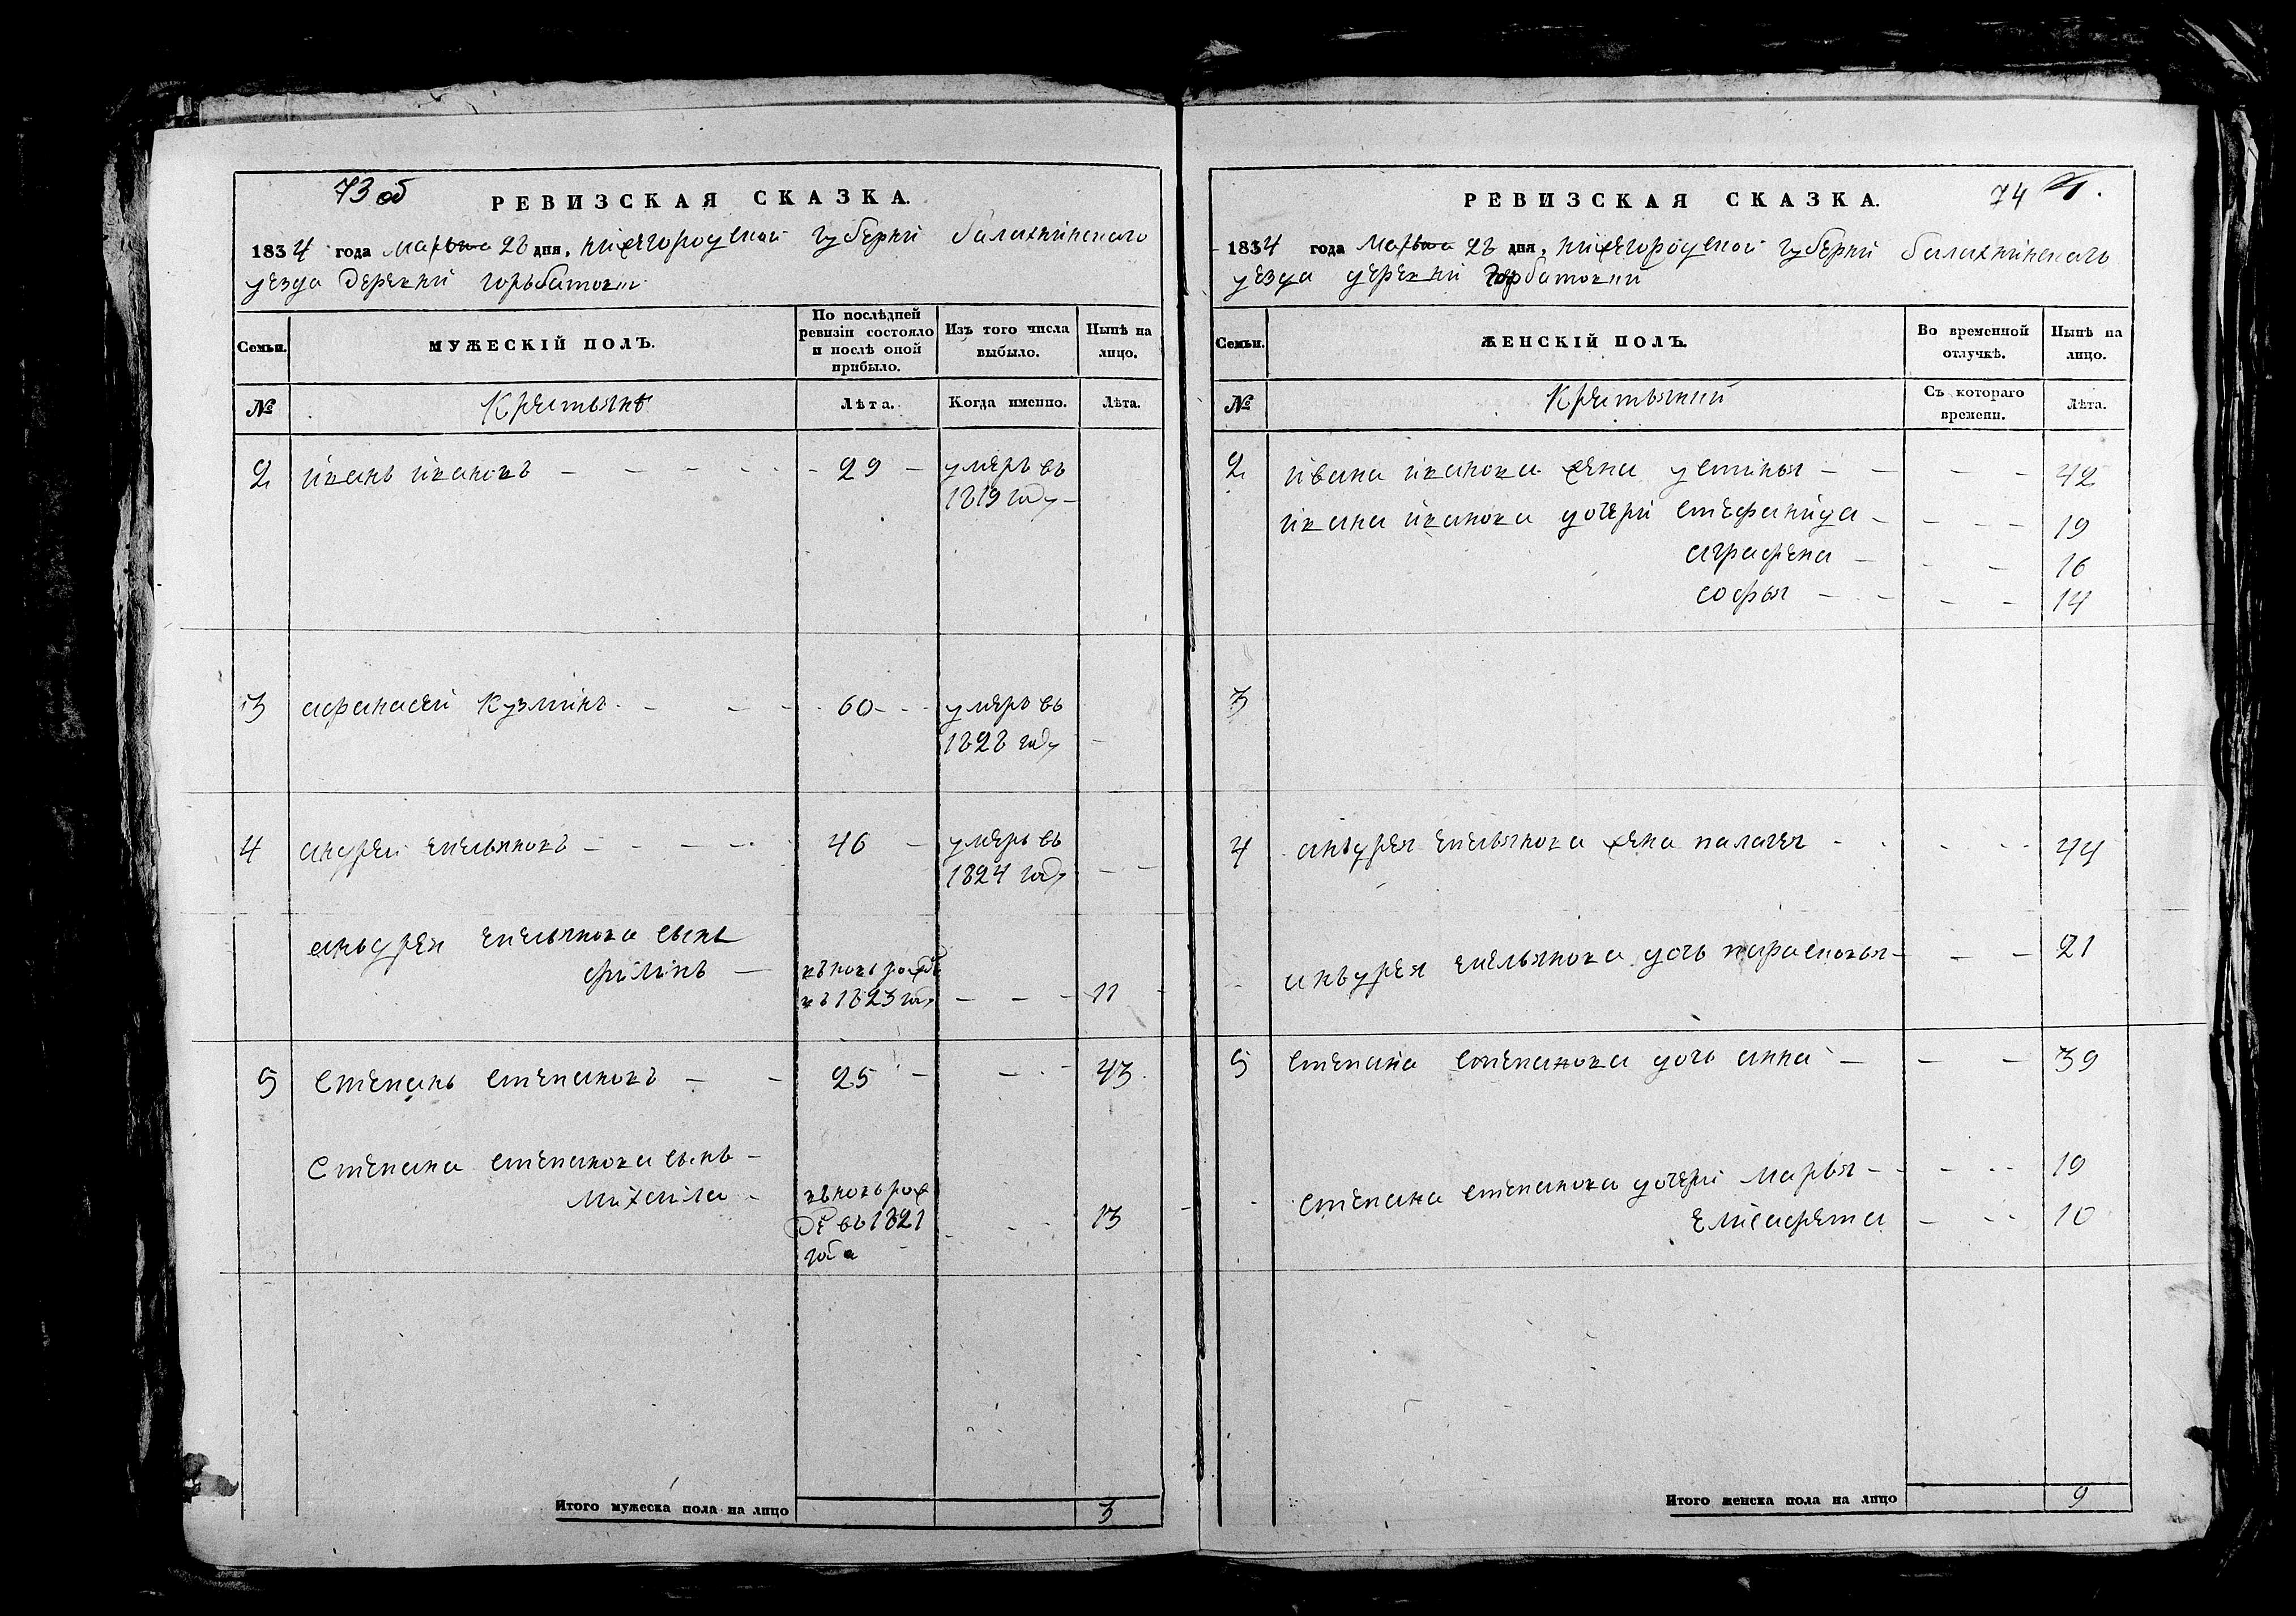 73 об
РЕВИЗСКАЯ СКАЗКА.
1834 года марта 28 дня, нижегородской губернии балахнинскаго
уезда деревни горьбатовки
Семьи.
МУЖЕСКІЙ ПОЛЪ.
По послѣдней ревизіи состояло и послѣ оной прибыло.
Изъ того числа выбыло.
Нынѣ на лицо.
№
Крестьяне
Лѣта.
Когда именно.
Лѣта.
2 иванъ ивановъ 29 умеръ въ
1819 году
3 афанасей Кузминъ 60 умеръ въ
1828 году
4 андрей емельяновъ 46 умеръ въ
1824 году
аньдрея емельянова сынъ
филипъ
вновь рожде
въ 1823 году 11
5 степанъ степановъ 25 43
Степана степанова сынъ
михаила
вновь рож
де въ 1821 13
года
Итого мужеска пола на лицо 3
74
РЕВИЗСКАЯ СКАЗКА.
1834 года марта 28 дня, нижегородской губернии балахнинскаго
уезда деревни горбатовки
Семьи.
ЖЕНСКІЙ ПОЛЪ.
Во временной отлучкѣ.
Нынѣ на лицо.
№
Крестьянки
Съ котораго времени.
Лѣта.
2 ивана иванова жена устинья 42
ивана иванова дочери степанида 19
аграфена 16
софья 14
3
4 аньдрея емельянова жена палагея 44
аньдрея емельянова дочь парасковья 21
5 степана степанова дочь анна 39
степана степанова дочери марья 19
елисафета 10
Итого женска пола на лицо 9